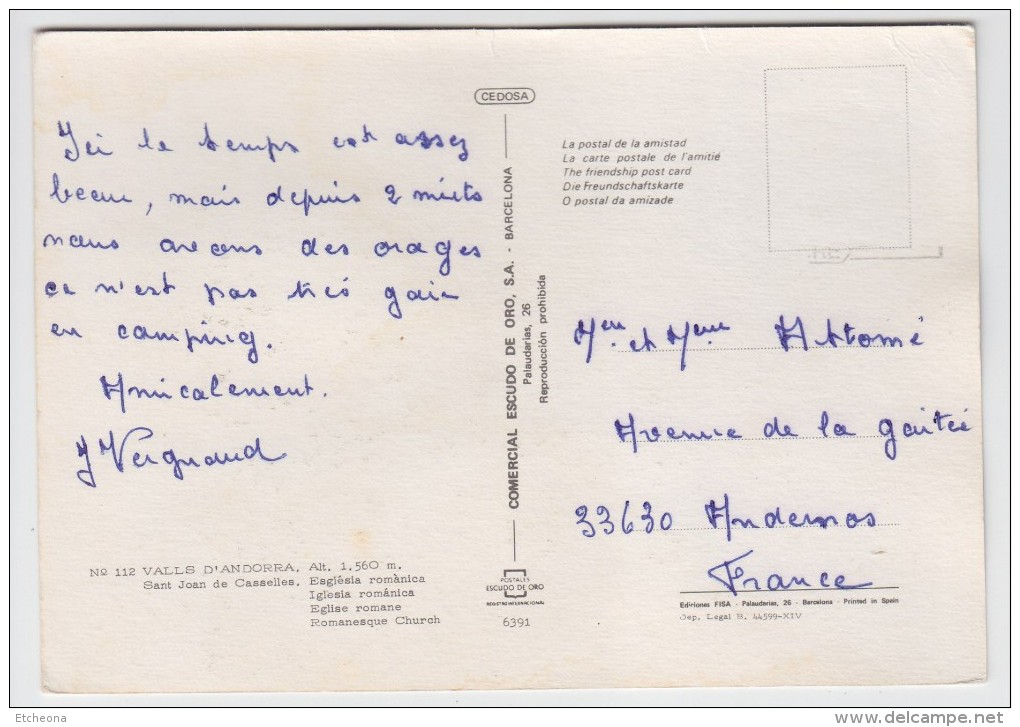 Ici le temps est assez
beau, mais depuis 2 nuits
nous avons des orages
ce n'est pas très gai
en camping.
Amicalement.
J Vergnaud
Nº 112 VALLS D'ANDORRA, Alt. 1.560 m.
Sant Joan de Casselles. Església românica
Iglesia românica
Eglise romane
Romanesque Church
CEDOSA
COMERCIAL ESCUDO DE ORO, S.A. - BARCELONA
Palaudarias, 26
Reproducción prohibida
POSTALES
ESCUDO DE ORO
REGISTRO INTERNACIONAL
6391
La postal de la amistad
La carte postale de l'amitié
The friendship post card
Die Freundschaftskarte
O postal da amizade
et Mme
Avenue de la gaité
33630 Andernos
France
Ediriones FISA - Palaudarias, 26 - Barcelona - Printed in Spain
Dep. Legal B. 44599-XIV
Etcheona
www.delcampe.net